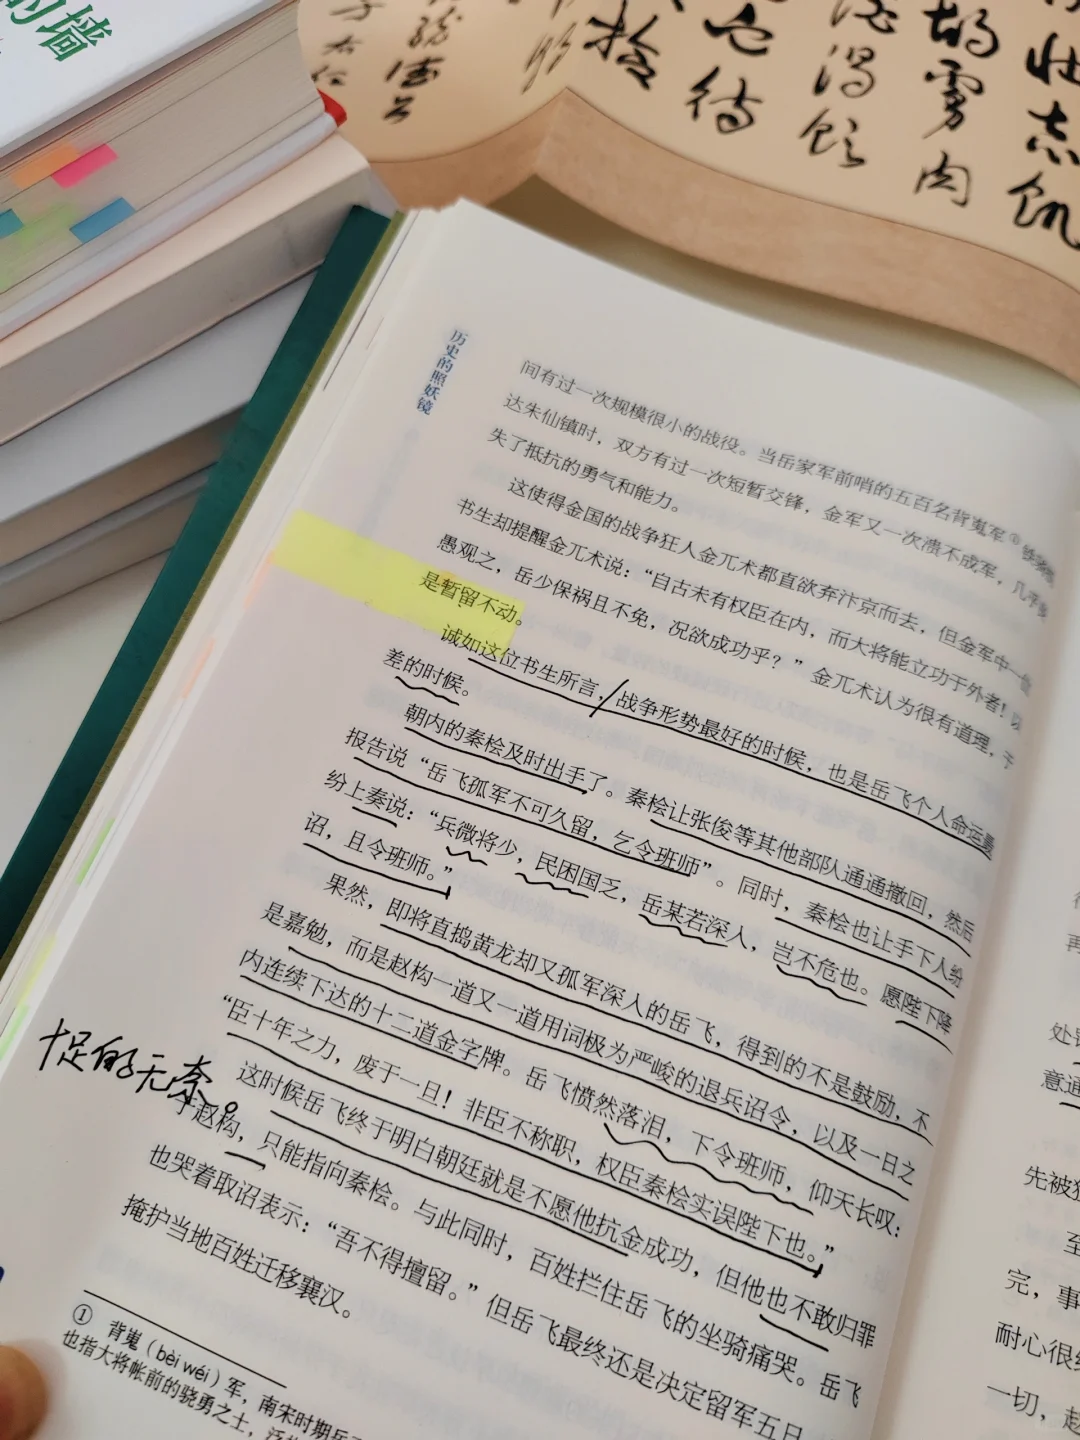 的墙
拾
待
渴饮
胡虏肉
壮志饥
历史的照妖镜
间有过一次规模很小的战役。当岳家军前哨的五百名背嵬军①铁骑
达朱仙镇时，双方有过一次短暂交锋，金军又一次溃不成军，几乎
失了抵抗的勇气和能力。
这使得金国的战争狂人金兀术都直欲弃汴京而去，但金军中一位
书生却提醒金兀术说：“自古未有权臣在内，而大将能立功于外者！以
愚观之，岳少保祸且不免，况欲成功乎？”金兀术认为很有道理，于
是暂留不动。
诚如这位书生所言，战争形势最好的时候，也是岳飞个人命运最
差的时候。
朝内的秦桧及时出手了。秦桧让张俊等其他部队通通撤回，然后
报告说“岳飞孤军不可久留，乞令班师”。同时，秦桧也让手下人纷
纷上奏说：“兵微将少，民困国乏，岳某若深入，岂不危也。愿陛下降
诏，且令班师。”
果然，即将直捣黄龙却又孤军深入的岳飞，得到的不是鼓励，不
是嘉勉，而是赵构一道又一道用词极为严峻的退兵诏令，以及一日之
内连续下达的十二道金字牌。岳飞愤然落泪，下令班师，仰天长叹：
“臣十年之力，废于一旦！非臣不称职，权臣秦桧实误陛下也。”
这时候岳飞终于明白朝廷就是不愿他抗金成功，但他也不敢归罪
于赵构，只能指向秦桧。与此同时，百姓拦住岳飞的坐骑痛哭。岳飞
也哭着取诏表示：“吾不得擅留。”但岳飞最终还是决定留军五日
掩护当地百姓迁移襄汉。
的无奈。
① 背嵬（bèi wéi）军，南宋时期岳
也指大将帐前的骁勇之士，泛
再
处
意通
先被
至
完，事
耐心很
一切，赵